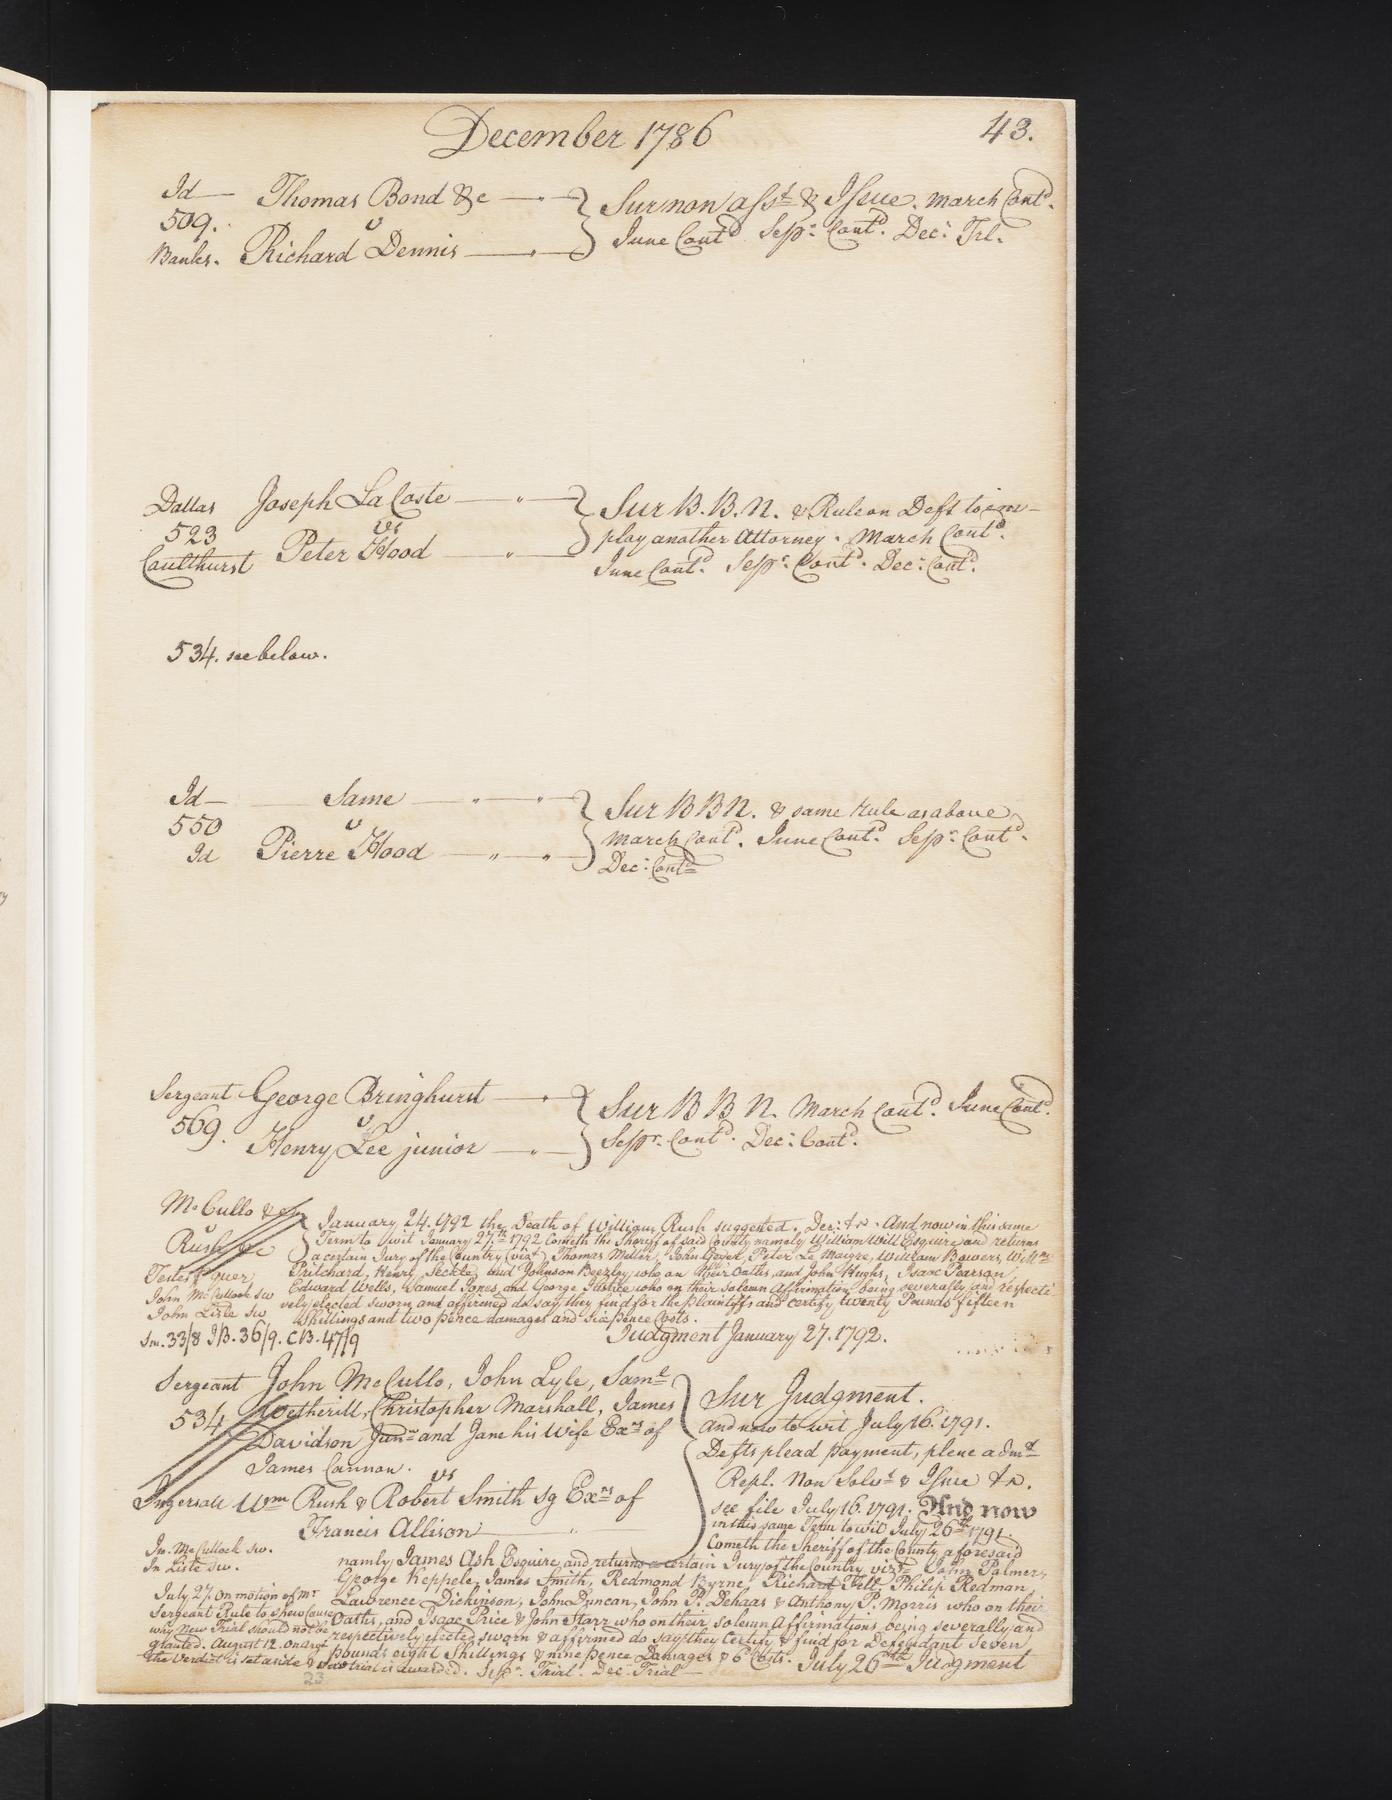 December 1786
43.
Id — Thomas Bond &c
509. v
Banks. Richard Dennis
Sur non Asst & Issue. March Contd.
June Contd Sepr. Contd. Dec: Trl.
Dallas Joseph La Coste
523 vs
Coulthurst Peter Hood
Sur B. B. N. & Rule on Deft to im-
ploy another Attorney. March Contd.
June Contd. Sepr. Contd. Dec: Contd.
534. see below.
Id — Same
550 v
Id Pierre Hood
Sur B B N. & same rule as above
March Contd. June Contd. Sepr. Contd.
Dec: Contd
Sergeant George Bringhurst
569. v
Henry Lee junior
Sur B B N. March Contd. June Contd.
Sepr. Contd. Dec: Contd.
McCullo &c
v
Rush &c
January 24. 1792 the Death of William Rush suggested. Dec: tr. And now in this same
Term to wit January 27th 1792 Cometh the Sheriff of said County namely William Will Esquire and returns
a certain Jury of the Country (vizt) Thomas Miller, John Geyer, Peter Le Maigre, William Bowers, Willm
Pritchard, Henry Seckle, and Johnson Beezley, who on their Oaths, and John Hughs, Isaac Pearson,
Edward Wells, Samuel Jones, and George Justice who on their solemn Affirmation being severally and respecti
vely elected sworn and affirmed do say they find for the plaintiffs and certify twenty Pounds fifteen
Shillings and two pence damages and six pence Costs.
Judgment January 27. 1792.
Testes
John McCullock sw
John Lisle sw
Sm. 33/8 JB. 36/9. CB. 47/9
Sergeant John McCullo, John Lyle, Saml
534 Wetherill, Christopher Marshall, James
Davidson Junr and Jane his Wife Exrs of
James Cannon.
vs
Ingersoll Wm Rush & Robert Smith sg Exrs of
Francis Allison
Sur Judgment.
And now to wit July 16. 1791.
Defts plead payment, plene admt
Repl. Non Solvt & Issue tr.
see file July 16. 1791. And now
in this same Term to wit July 26th 1791.
Cometh the Sheriff of the County aforesaid
namly James Ash Esquire, and returns a certain Jury of the Country vizt John Palmer,
George Keppele, James Smith, Redmond Byrne, Richard Tell, Philip Redman,
Lawrence Dickinson, John Duncan, John P. Dehaas & Anthony P. Morris who on their
Oaths, and Isaac Price & John Starr who on their solemn Affirmations being severally and
respectively elected, sworn & affirmed do say they Certify & find for Defendant Seven
pounds eight Shillings & nine pence Damages & 6d Costs. July 26th Judgment
Jn. McCullock sw.
Jn Lisle sw.
July 27. On motion of Mr
Sergeant Rule to shew Cause
why New Trial should not be
granted. August 12. On argt
the Verdict is set aside & new trial is awarded. Sepr. Trial. Dec. Trial
23